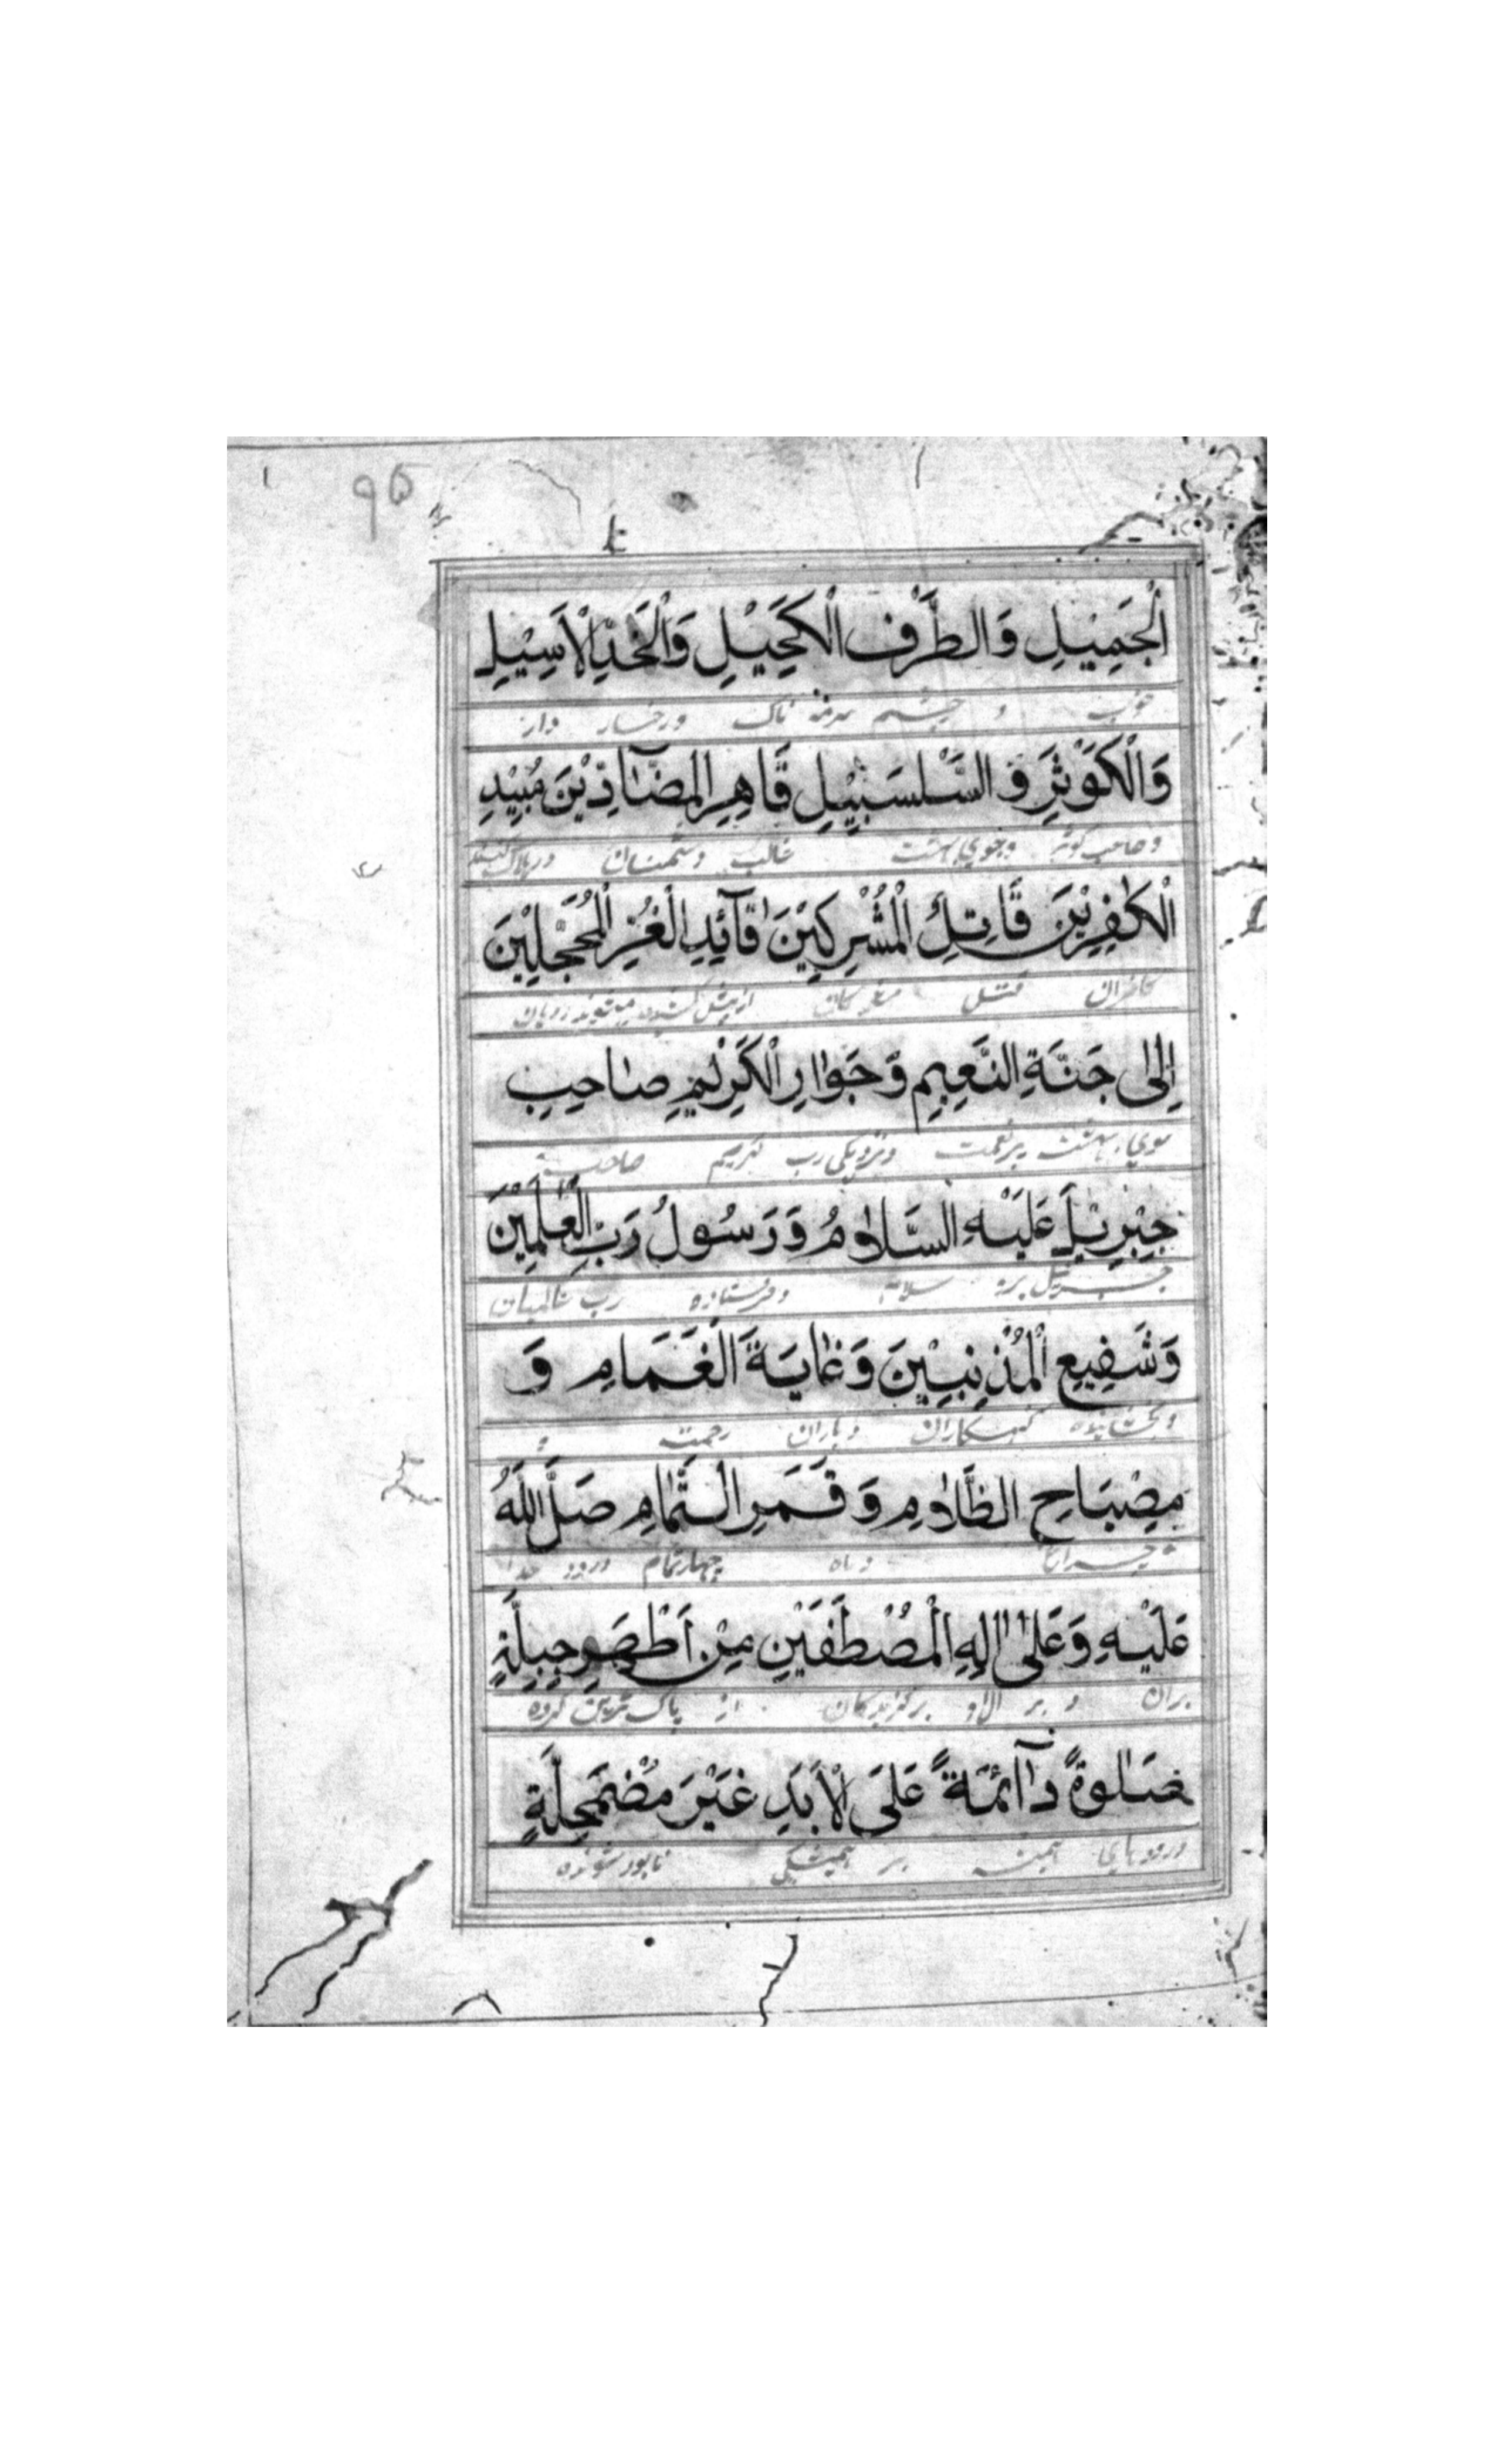 ۹۵
الْجَمِيْلِ وَالطَّرْفِ الْكَحِيْلِ وَالْخَدِّ الْاَسِيْلِ
خوب و چشم سرمه ناک و رخسار دراز
وَالْكَوْثَرِ وَ السَّلْسَبِيْلِ قَاهِرِ الْمُضَآدِّيْنَ مُبِيْدِ
و صاحب کوثر و جوی بهشت غالب دشمنان و هلاک کننده
الْكٰفِرِيْنَ قَاتِلِ الْمُشْرِكِيْنَ قَآئِدِ الْغُرِّ الْمُحَجَّلِيْنَ
کافران قتل مشرکان
اِلٰى جَنَّةِ النَّعِيْمِ وَ جَوَارِ الْكَرِيْمِ صَاحِبِ
سوی بهشت پر نعمت و نزدیکی رب کریم صاحب
جِبْرِيْلَ عَلَيْهِ السَّلَامُ وَ رَسُوْلُ رَبِّ الْعٰلَمِيْنَ
جبرئیل بره سلام و فرستاده رب عالمیان
وَشَفِيْعِ الْمُذْنِبِيْنَ وَ غَايَةَ الْغَمَامِ وَ
و بخشاینده گنهکاران و باران رحمت و
مِصْبَاحِ الظَّلَامِ وَ قَمَرِ التَّمَامِ صَلَّى اللّٰهُ
چراغ و ماه چهار تمام درود خدا
عَلَيْهِ وَعَلٰى اٰلِهِ الْمُصْطَفَيْنَ مِنْ اَطْهَرِ جِبِلَّةٍ
بران و بر ال او برگزیدگان از پاک ترین گروه
صَلٰوةً دَآئِمَةً عَلَى الْاَبَدِ غَيْرَ مُضْمَحِلَّةٍ
درودهای همیشه بر همیشگی نابود شونده